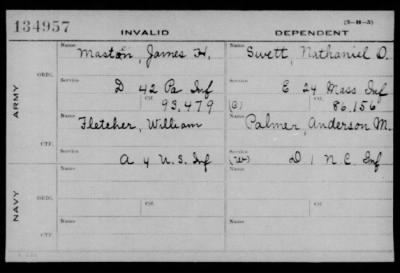 134957
INVALID
DEPENDENT
(3-H-3)
ARMY
ORIG.
Name Maston, James H.
Name Swett, Nathaniel O.
Service D 42 Pa Inf
Service E 24 Mass Inf
Ctf. 93,479
(G) Ctf. 86,156
CTF.
Name Fletcher, William
Name Palmer, Anderson M.
Service A 4 U.S. Inf
Service D 1 N.C. Inf
NAVY
ORIG.
Name
Name
Service
Service
Ctf.
Ctf.
CTF.
Name
Name
Service
Service